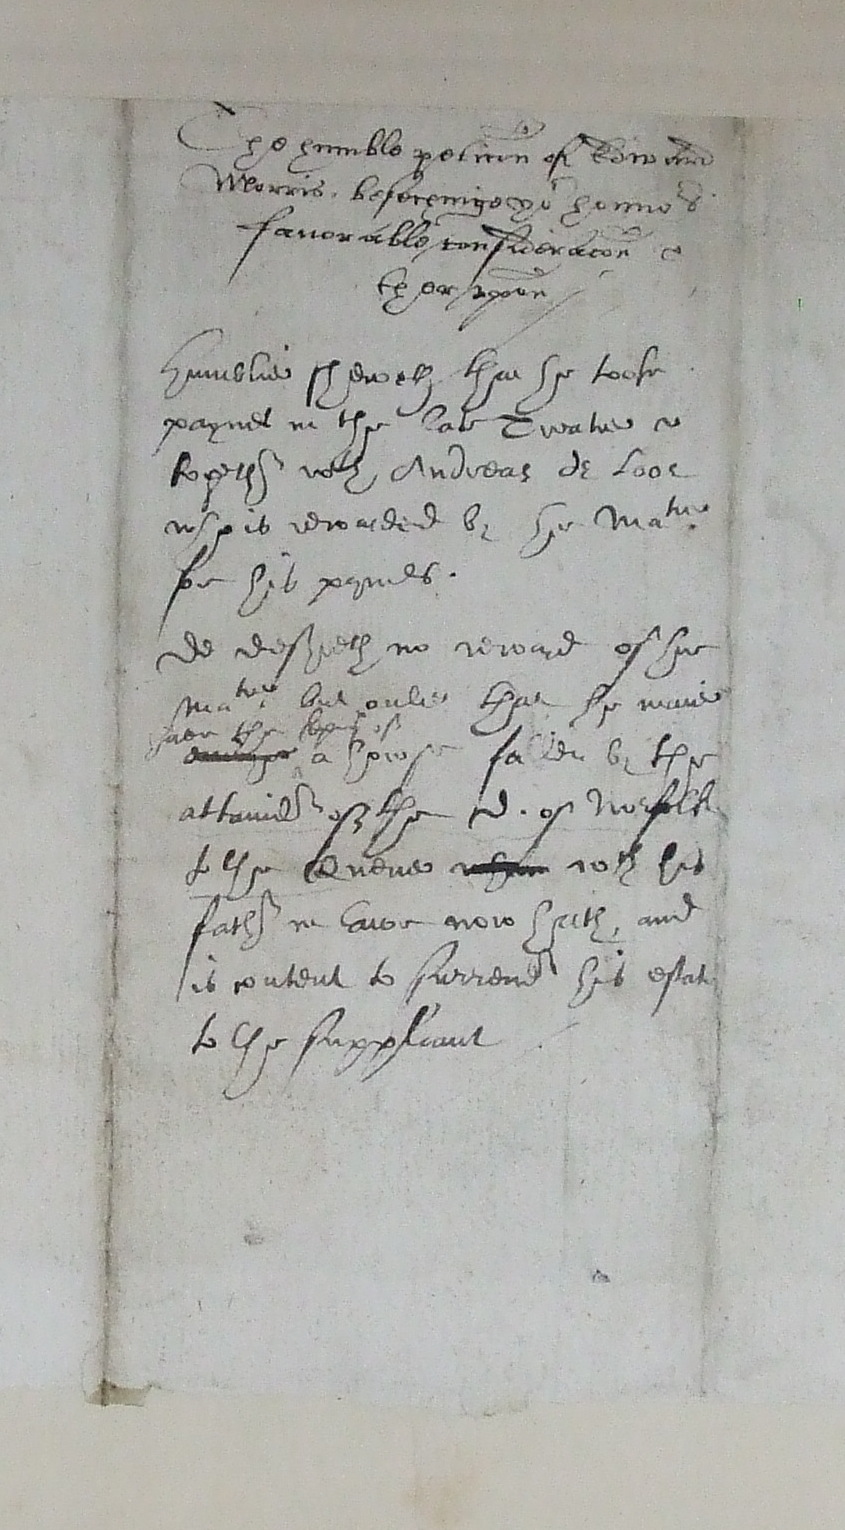 The humble peticon of Edward
Morris. beseechinge yor honnors
favorable consideracon
therupon
Humblie sheweth that he tooke
paynes in the late Treatie
togethr wth Andreas de Looe
who is rewarded by her Matie
for his paynes.
He desireth no reward of her
Matie but onlie that he maie
have the lease of
a howse fallen by the
attaindr of the D. of Norfolk
to the Quene wch his
fathr in lawe now hath, and
is content to surrendr his estate
to the suppliant